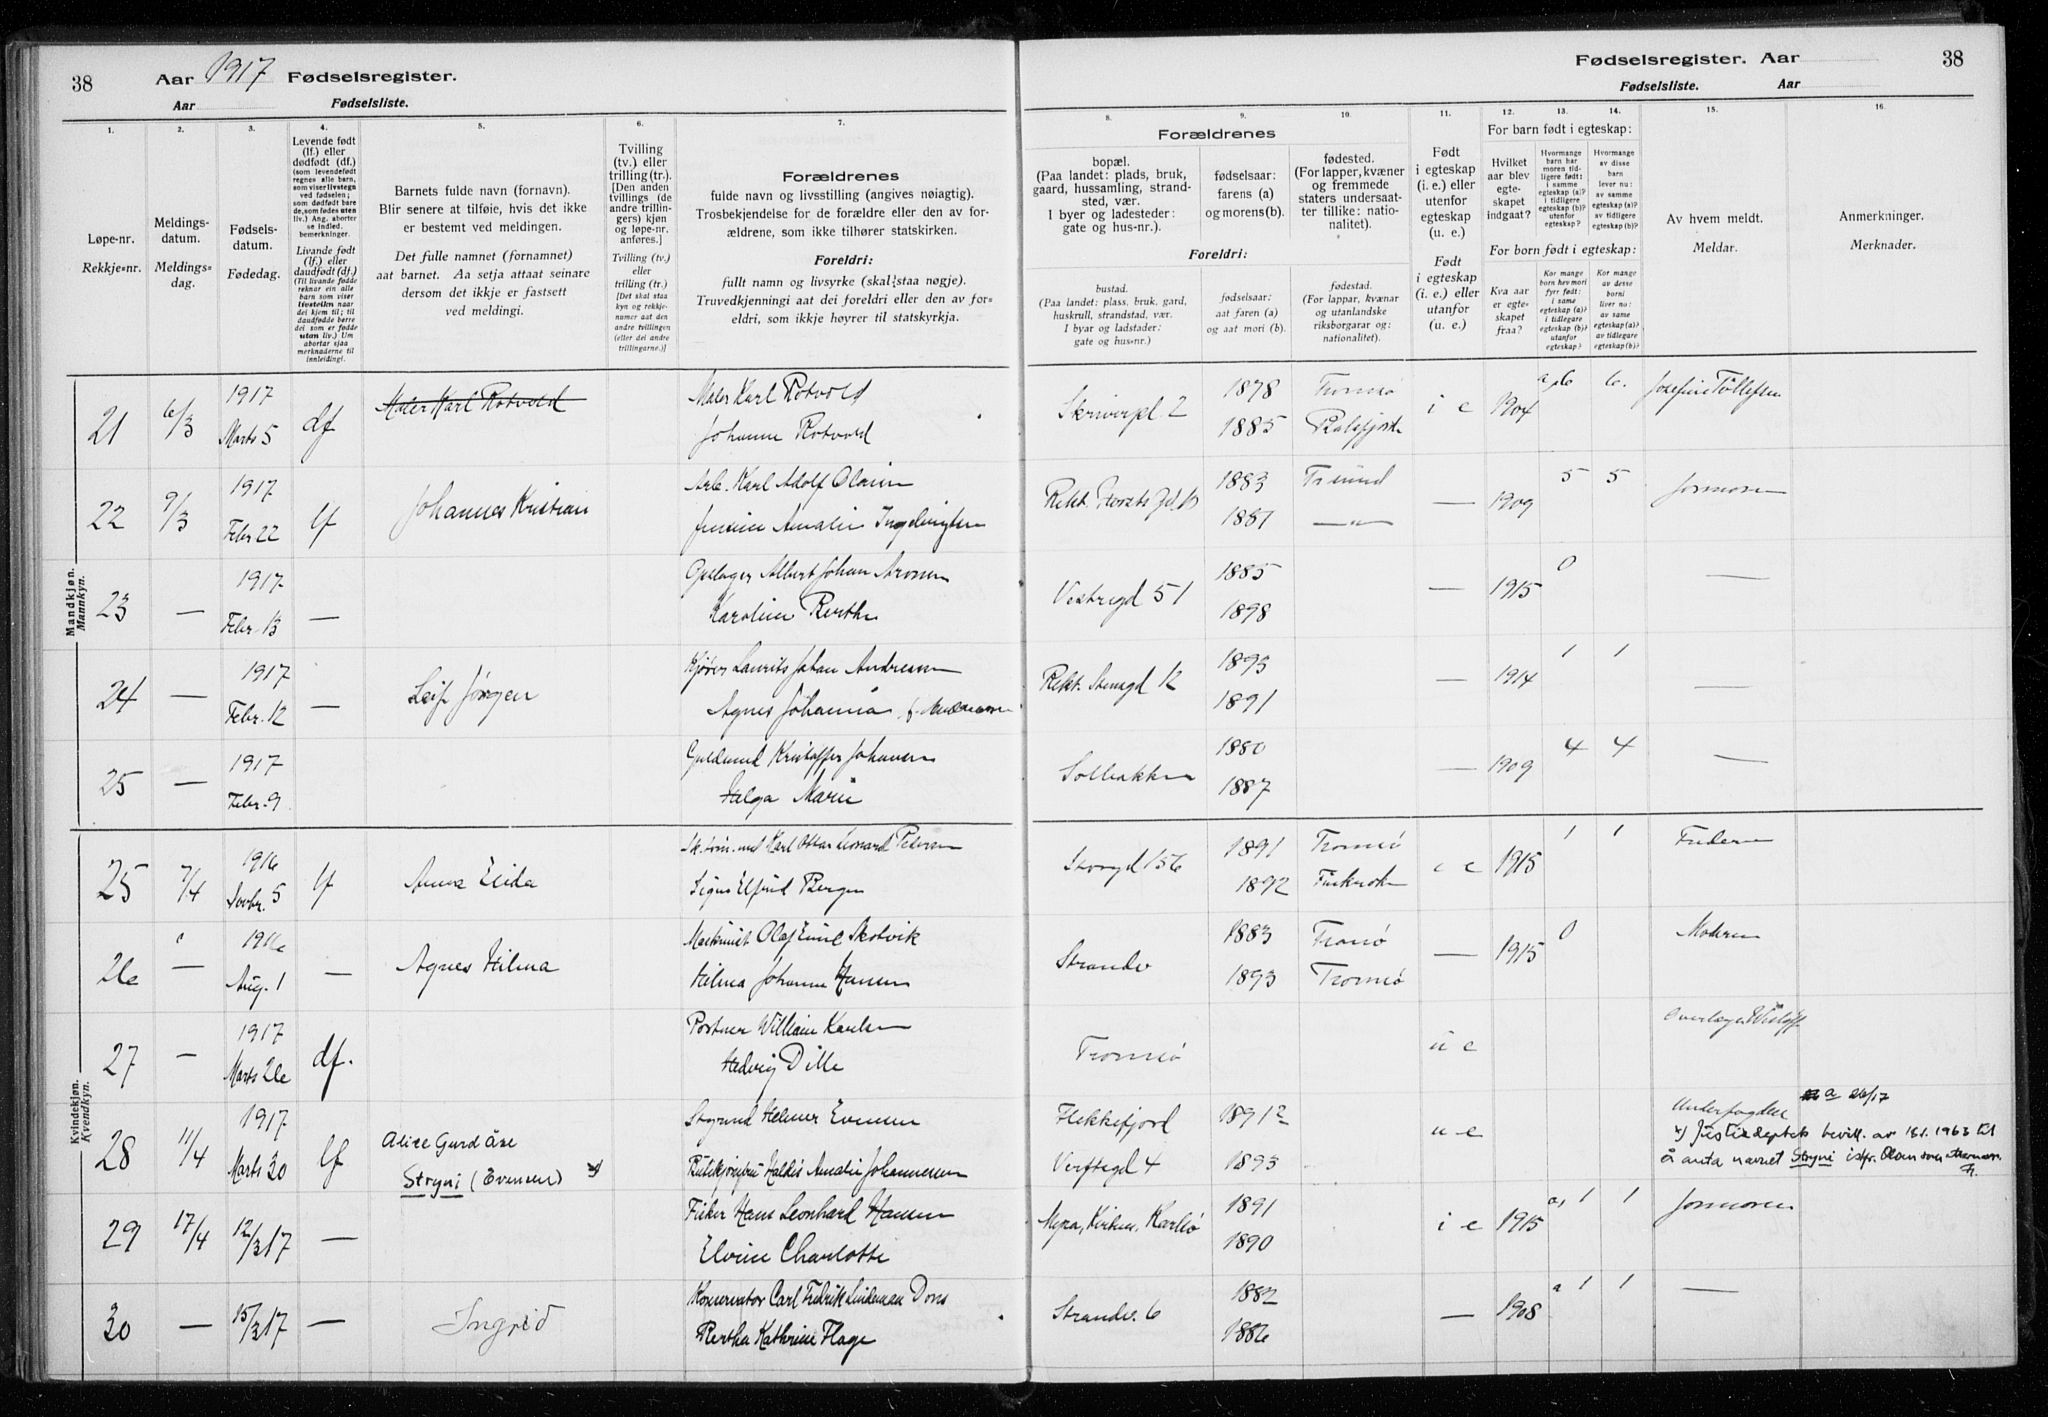 38 Aar 1917 Fødselsregister.
Aar Fødselsliste.
Fødselsregister. Aar 38
Fødselsliste. Aar
1. 2. 3. 4. 5. 6. 7. 8. 9. 10. 11. 12. 13. 14. 15. 16.
Løpe-nr.
Rekkje-nr.
Meldings-
datum.
Meldings-
dag.
Fødsels-
datum.
Fødedag.
Levende født
(lf.) eller
dødfødt (df.)
(som levendefødt
regnes alle barn,
som viser livstegn
ved fødselen;
som dødfødt bare
de, som fødes uten
liv.) Ang. aborter
se indled.
bemerkninger.
Livande født
(lf.) eller
daudfødt (df.)
(Til livande fødde
reknar ein alle
born som viser
livsteikn naar
dei kjem til; til
daudfødde berre
dei som er fødde
utan liv.) Um
abortar sjaa
merknaderne til
innleiding.
Barnets fulde navn (fornavn).
Blir senere at tilføie, hvis det ikke
er bestemt ved meldingen.
Det fulle namnet (fornamnet)
aat barnet. Aa setja attaat seinare
dersom det ikkje er fastsett
ved meldingi.
Tvilling
(tv.) eller
trilling (tr.).
[Den anden
tvillings (de
andre trillin-
gers) kjøn
og løpe-nr.
anføres.]
Tvilling (tv.)
eller
trilling (tr.)
[Det skal staa
kyn og rekkje-
numer aat den
andre tvillingen
(eller dei andre
trillingarne.)]
Forældrenes
fulde navn og livsstilling (angives nøiagtig).
Trosbekjendelse for de forældre eller den av for-
ældrene, som ikke tilhører statskirken.
Foreldri:
fullt namn og livsyrke (skal staa nøgje).
Truvedkjenningi aat dei foreldri eller den av for-
eldri, som ikkje høyrer til statskyrkja.
Forældrenes
bopæl.
(Paa landet: plads, bruk,
gaard, hussamling, strand-
sted, vær.
I byer og ladesteder:
gate og hus-nr.).
fødselsaar:
farens (a)
og morens (b).
fødested.
(For lapper, kvæner
og fremmede
staters undersaat-
ter tillike: natio-
nalitet).
Foreldri:
bustad.
(Paa landet: plass, bruk, gard,
huskrull, strandstad, vær.
I byar og ladstader:
gate og hus-nr.)
fødselsaar:
aat faren (a)
og aat mori (b).
fødestad.
(For lappar, kvænar
og utanlandske
riksborgarar og:
nationalitet).
Født
i egteskap
(i. e.) eller
utenfor
egteskap
(u. e.)
Født
i egteskap
(i. e.) eller
utanfor
(u. e.)
For barn født i egteskap:
Hvilket
aar blev
egte-
skapet
indgaat?
Hvormange
barn har
moren tid-
ligere født:
i samme
egteskap (a)?
i tidligere
egteskap (b)?
utenfor
egteskap?
Hvormange
av disse
barn
lever nu:
av samme
egteskap (a)?
av tidligere
egteskap (b)?
For born født i egteskap:
Kva aar
er egte-
skapet
fraa?
Kor mange
born hev mori
fyrr født:
i same
egteskap (a)?
i tidlegare
egteskap (b)?
utanfor
egteskap?
Kor mange
av desse
borni
liver nu:
av same
egteskap (a)?
av tidlegare
egteskap (b)?
Av hvem meldt.
Meldar.
Anmerkninger.
Merknader.
Mandkjøn.
Mannkyn.
21 6/3 1917 Marts 5 df Maler Karl Rotvold
Maler Karl Rotvold
Johanne Rotvold
Skriverpl. 2 1878 Tromsø i e 1904 a, 6 6. Josefine Tollefsen
1885 Balsfjord
22 9/3 1917 Febr 22 lf Johannes Kristian
Arb. Karl Adolf Olsen
Amalie
1883 Trsund — 1909 5 5 Jormoren
1887 —„—
23 — 1917 Febr. 13 —
Albert Johan
Karoline Berthe
Vestregd 51 1885 — 1915 0 —
1898
24 — 1917 Febr. 12 — Leif Jørgen
Kjører Laurits Johan Andresen
Agnes Johanna
Rekt. Stensgd 12 1893 — 1914 1 1 —
1891
25 — 1917 Febr. 9
Guldsmed Kristoffer Johansen
Helga Marie
Solbakken 1880 — 1909 4 4 —
1887
Kvindekjøn.
Kvendkyn.
25 7/4 1916 Novbr. 5 lf Anna Elida
Karl Ottar Leonard Pedersen
Signe Elfrid Bergen
Storgd 156 1891 Tromsø i e 1915 1 1 Faderen
1892
26 — 1916 Aug. 1 — Agnes Hilma
Maskinist Olaf Emil Skotvik
Hilma Johanne Hansen
Strandv 1883 Tromsø — 1915 0 Moderen
1893 Tromsø
27 — 1917 Marts 26 df.
Portner William Karlsen
Hedvig Dille
Tromsø u e Overlæge
28 11/4 1917 Marts 30 lf Alice Gurd Åse
Stryni (Evensen) x)
Styrmd Helmer Evensen
Haldis Amalie Johannessen
Flekkefjord 1891 u e a 26/17
Verftsgd 4 1893
x) Justisdeptets bevill. av 18.1.1963 til
å anta navnet Stryni istf. Olsen som
29 17/4 12/3 17 —
Fisker Hans Leonhard Hansen
Elvine Charlotte
Karlsø 1891 i e 1915 a, 1 1 Jormoren
1890
30 — 15/3 17 — Ingrid
Konservator Carl Fredrik Lindeman Dons
Bertha Kathrine Flage
Strandv. 6 1882 — 1908 a 1 1 —
1886